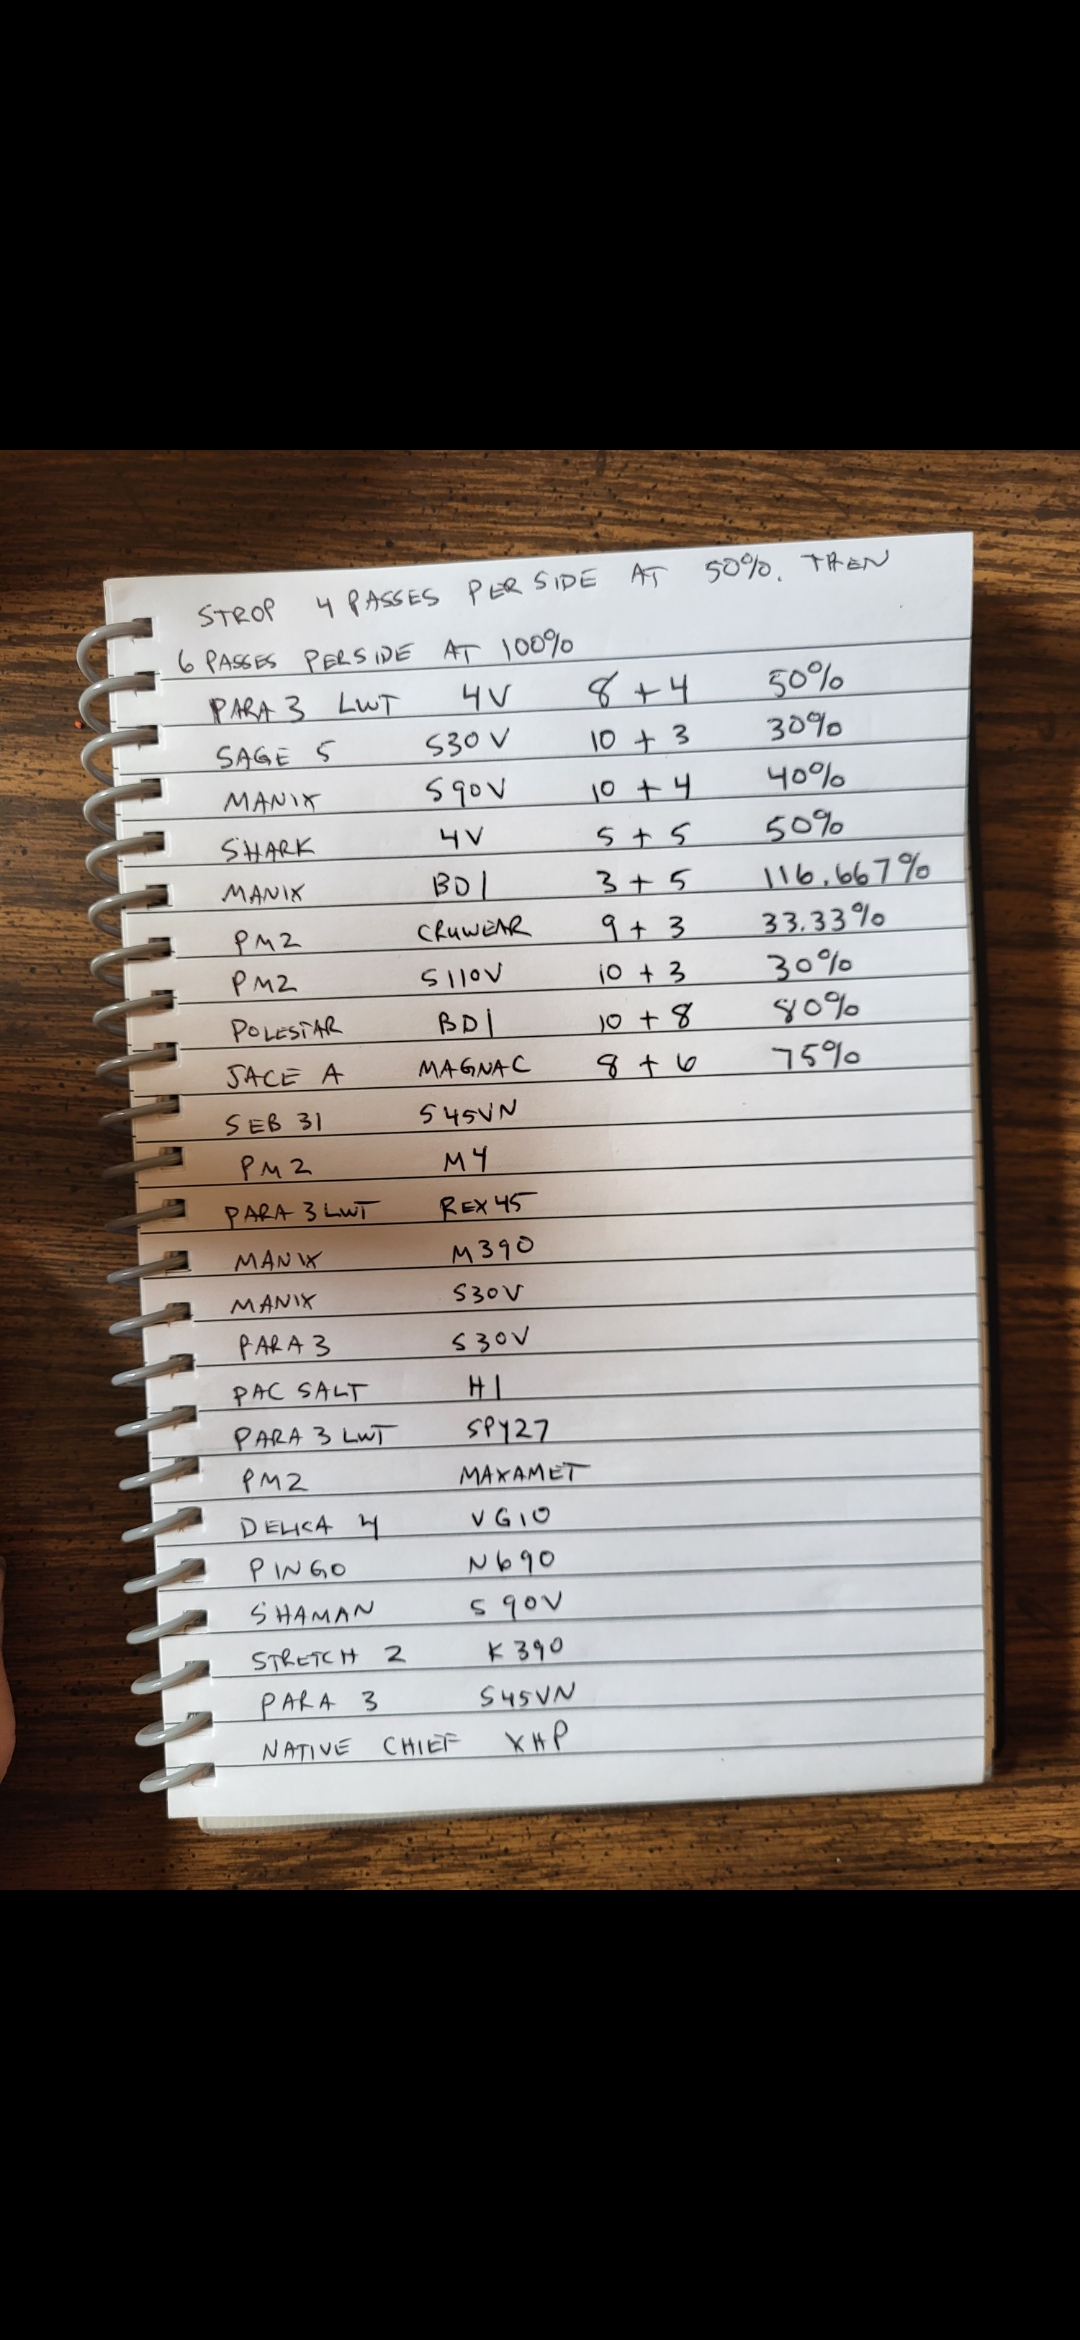 STROP 4 PASSES PER SIDE AT 50%. THEN
6 PASSES PER SIDE AT 100%
PARA 3 LWT 4V 8 + 4 50%
SAGE 5 S30V 10 + 3 30%
MANIX S90V 10 + 4 40%
SHARK 4V 5 + 5 50%
MANIX BD1 3 + 5 116.667%
PM2 CRUWEAR 9 + 3 33.33%
PM2 S110V 10 + 3 30%
POLESTAR BD1 10 + 8 80%
JACE A MAGNAC 8 + 6 75%
SEB 31 S45VN
PM2 M4
PARA 3 LWT REX 45
MANIX M390
MANIX S30V
PARA 3 S30V
PAC SALT H1
PARA 3 LWT SPY27
PM2 MAXAMET
DELICA 4 VG10
PINGO N690
SHAMAN S90V
STRETCH 2 K390
PARA 3 S45VN
NATIVE CHIEF XHP